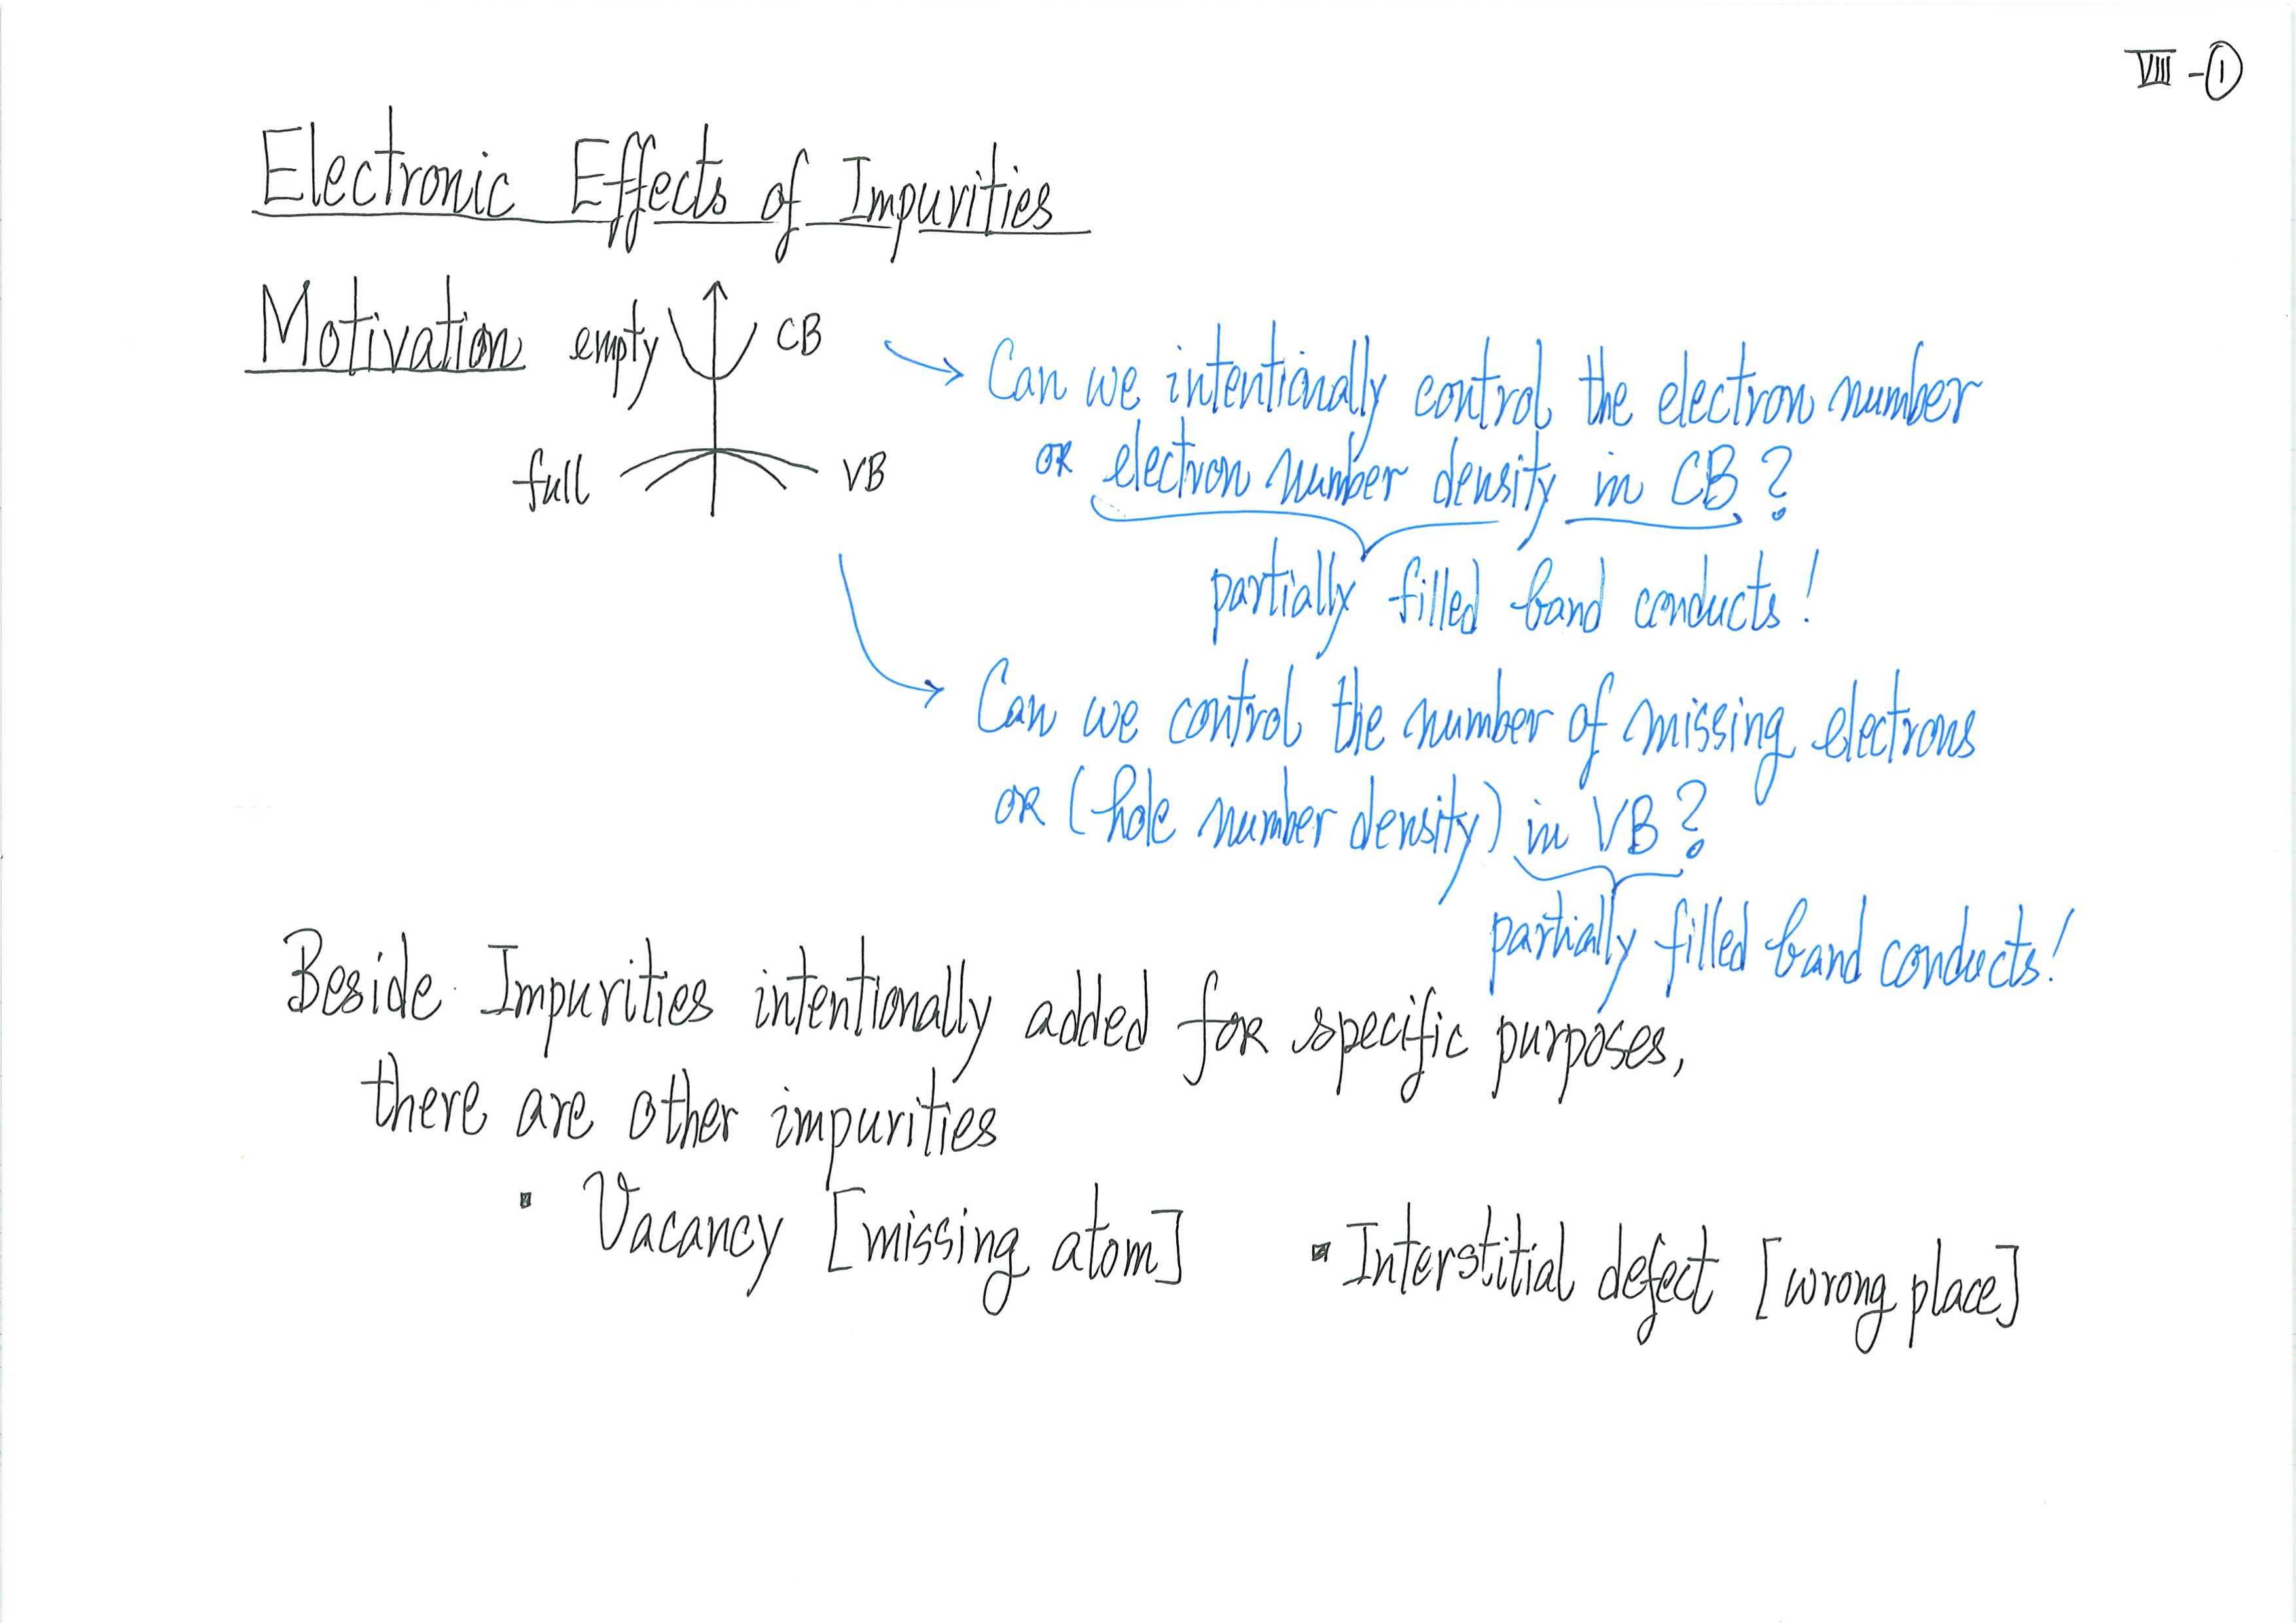 VIII - ①
Electronic Effects of Impurities
Motivation empty CB
full VB
Can we intentionally control the electron number
or electron number density in CB?
partially filled band conducts!
Can we control the number of missing electrons
or (hole number density) in VB?
partially filled band conducts!
Beside Impurities intentionally added for specific purposes,
there are other impurities
▪ Vacancy [missing atom] ▪ Interstitial defect [wrong place]